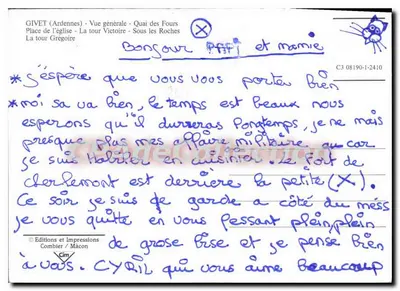 GIVET (Ardennes) - Vue générale - Quai des Fours
Place de l'église - La tour Victoire - Sous les Roches
La tour Grégoire
C3 08190-1-2410
Bonjour PAPI et mamie
*J'espère que vous vous porter bien
*moi sa va bien, le temps est beaux nous
esperons qu'il durreras longtemps, je ne mais
presque plus mes affaire militaire car
je suis Habriel en cuisinier Le fort de
cherlemont est derrière la petite (X).
Ce soir je suis de garde a côté du mess
je vous quitte en vous fessant plein, plein
de grose bise et je pense bien
à vous. CYRIL qui vous aime beaucoup
© Editions et Impressions
Combier / Mâcon
Cim